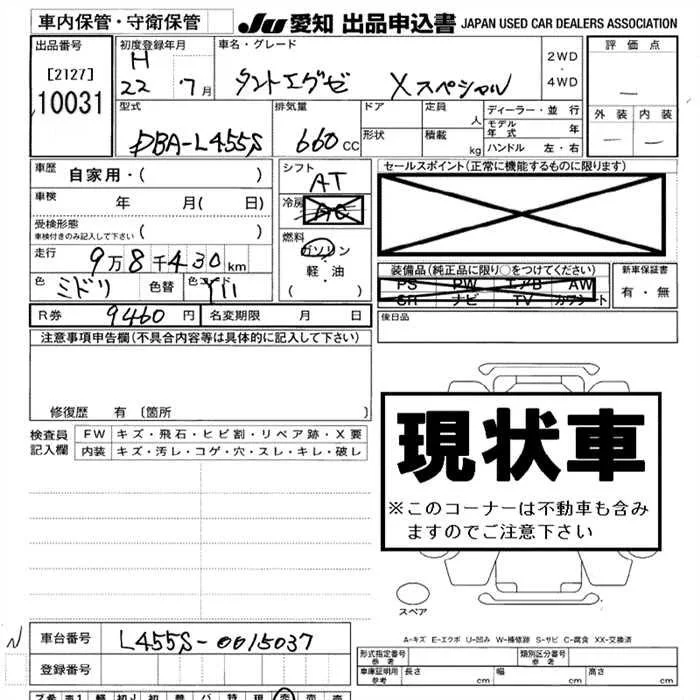 車内保管・守衛保管
JU 愛知 出品申込書 JAPAN USED CAR DEALERS ASSOCIATION
出品番号
[2127]
10031
初度登録年月
H
22 7月
車名・グレード
タントエグゼ Xスペシャル
2WD
・
4WD
評価点
外装 内装
型式
DBA-L455S
排気量
660CC
ドア
形状
定員
人
積載
kg
ディーラー・並行
モデル年式 年
ハンドル 左・右
車歴 自家用・( )
車検 年 月( 日)
受検形態
車検付きのみ記入して下さい ( )
走行 9万8千430km
色 ミドリ 色替 色コード
R券 9460円 名変期限 月 日
シフト
AT
冷房
AC
燃料
ガソリン
軽・油
( )
セールスポイント(正常に機能するものに限ります)
装備品(純正品に限り○をつけてください)
PS PW エアB AW
SR ナビ TV カワシート
新車保証書
有・無
後日品
注意事項申告欄(不具合内容等は具体的に記入して下さい)
修復歴 有 [箇所 ]
検査員
記入欄
FW キズ・飛石・ヒビ割・リペア跡・X要
内装 キズ・汚レ・コゲ・穴・スレ・キレ・破レ
現状車
※このコーナーは不動車も含み
ますのでご注意下さい
スペア
A-キズ E-エクボ U-凹み W-補修跡 S-サビ C-腐食 XX-交換済
車台番号 L455S-0015037
登録番号
型式指定番号
参考
類別区分番号
参考
車庫証明用
参考
長さ cm 幅 cm 高さ cm